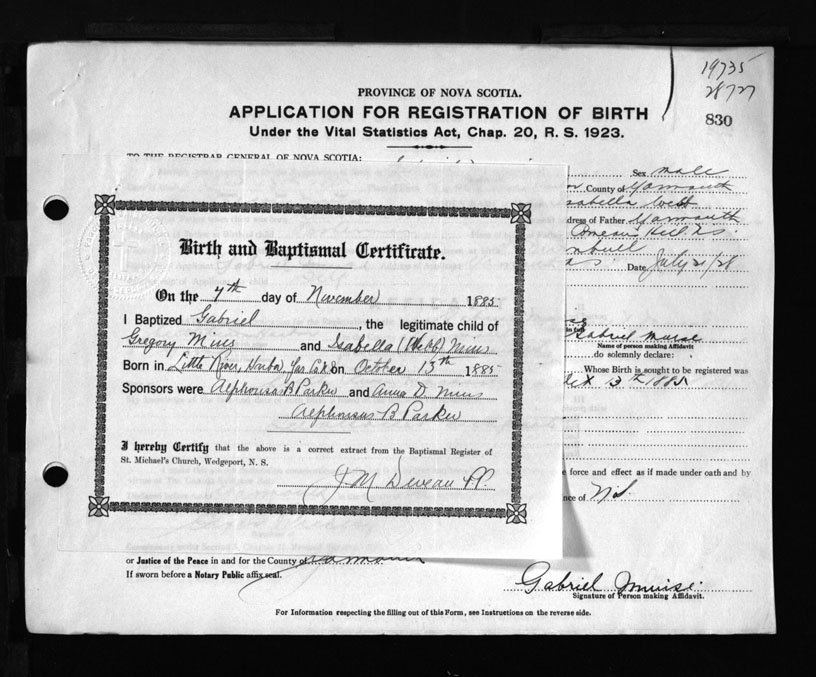 19735
2872
830
PROVINCE OF NOVA SCOTIA.
APPLICATION FOR REGISTRATION OF BIRTH
Under the Vital Statistics Act, Chap. 20, R. S. 1923.
TO THE REGISTRAR GENERAL OF NOVA SCOTIA:
Sex male
County of Yarmouth
West
dress of Father Yarmouth
Comeau's Hill N.S.
Date July 21/28
Birth and Baptismal Certificate.
On the 7th day of November 1885
I Baptized Gabriel, the legitimate child of
Gregory Mius and Isabella Mius
Born in Little River, Harbor, Yar. Co. on October 13th 1885
Sponsors were Alphonsus B Parker and Anna D. Mius
Alphonsus B Parker
I hereby Certify that the above is a correct extract from the Baptismal Register of
St. Michael's Church, Wedgeport, N. S.
J M Deveau P.P.
Gabriel
Name of person making Affidavit
do solemnly declare:
Whose Birth is sought to be registered was
13th 1885
e force and effect as if made under oath and by
nce of N.S.
or Justice of the Peace in and for the County of Yarmouth
If sworn before a Notary Public affix seal.
Gabriel Muise
Signature of Person making Affidavit.
For Information respecting the filling out of this Form, see Instructions on the reverse side.